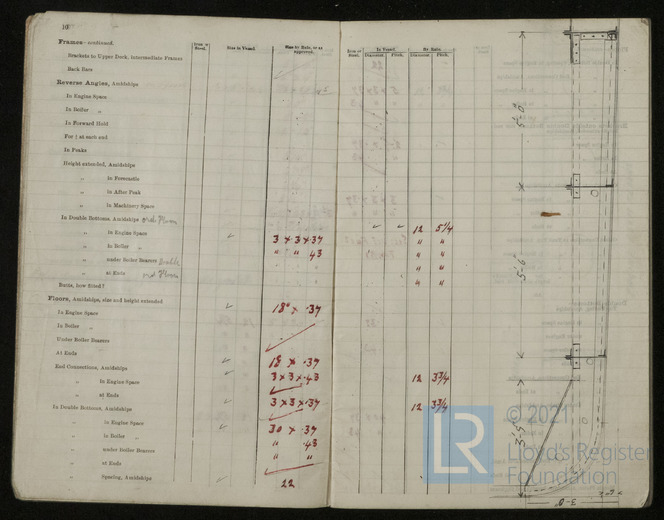 10
Iron or Steel. Size in Vessel. Size by Rule, or as approved. Iron or Steel. In Vessel. Diameter. Pitch. By Rule. Diameter. Pitch.
Frames—continued.
Brackets to Upper Deck, Intermediate Frames
Back Bars
Reverse Angles, Amidships
In Engine Space
In Boiler „
In Forward Hold
For ⅕ at each end
In Peaks
Height extended, Amidships
„ in Forecastle
„ in After Peak
„ in Machinery Space
In Double Bottoms, Amidships 12 5¼
„ in Engine Space 3 × 3 × ·37 „ „
„ in Boiler „ „ „ 43 „ „
„ under Boiler Bearers Double „ „
„ at Ends „ „
Butts, how fitted?
Floors, Amidships, size and height extended
In Engine Space 18" × ·37
In Boiler „
Under Boiler Bearers
At Ends
End Connections, Amidships 18 × ·37
„ In Engine Space 3 × 3 × ·43 12 3¾
„ at Ends
In Double Bottoms, Amidships 3 × 3 × ·37 12 3¾
„ in Engine Space 30 × ·37
„ in Boiler „ „ ·43
„ under Boiler Bearers „ „
„ at Ends
„ Spacing, Amidships 22
5'-0"
5'-6"
3'-5"
3-0"
© 2021
LR
Lloyd's Register
Foundation